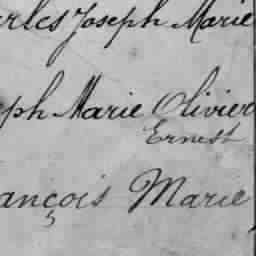 arles Joseph Marie
eph Marie Olivier
Ernest
ançois Marie